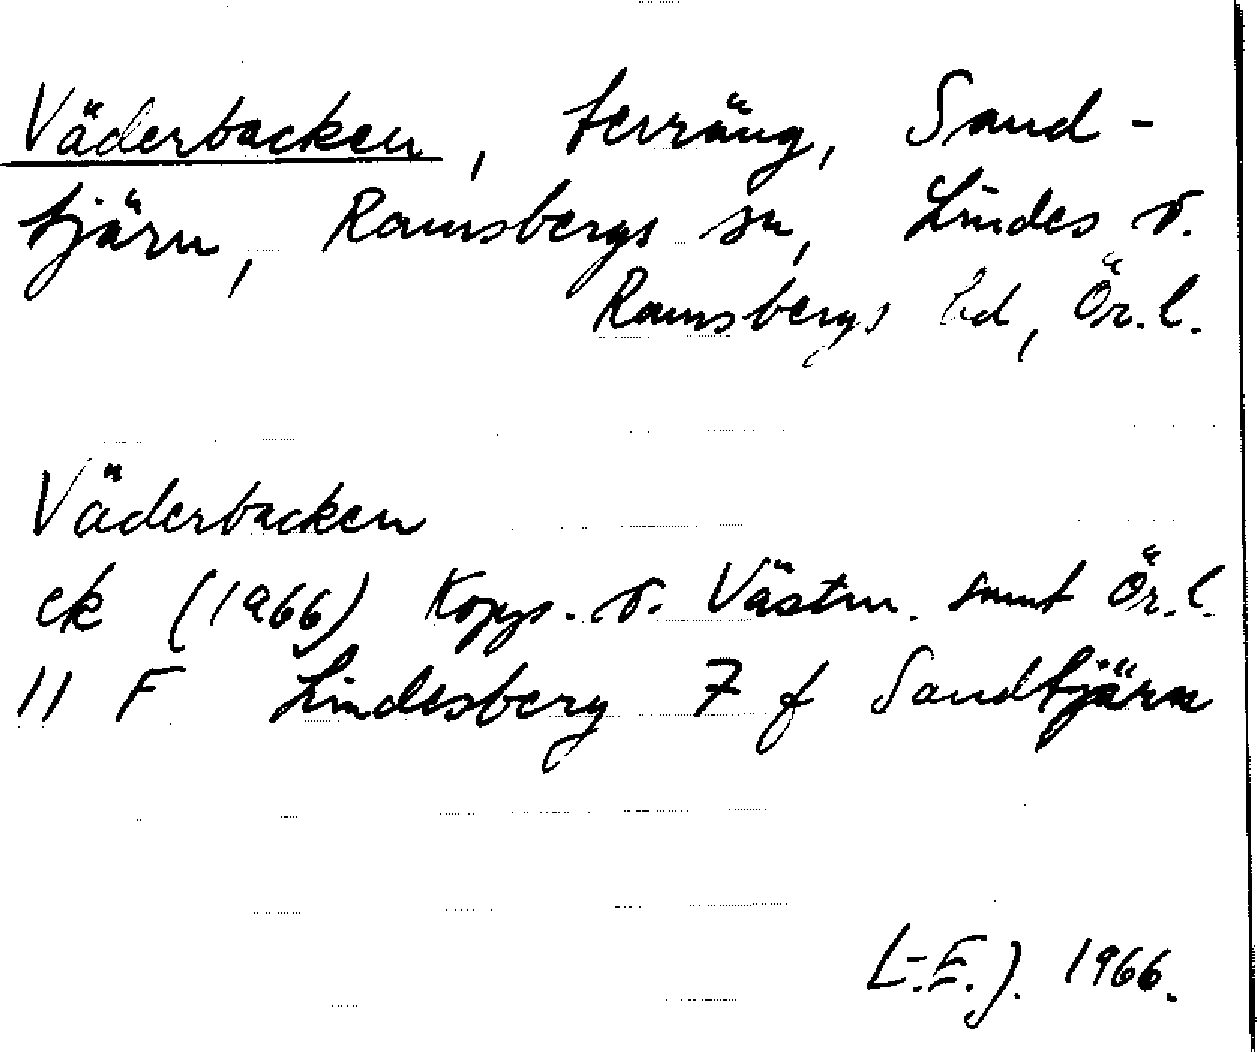 Väderbacken, terräng, Sand-
tjärn, Ramsbergs sn, Lindes o.
Ramsbergs hd, Ör. l.
Väderbacken
ek (1966) Kopp. o. Västm. samt Ör. l.
11 F Lindesberg 7 f Sandtjärn
L.-E. J. 1966.